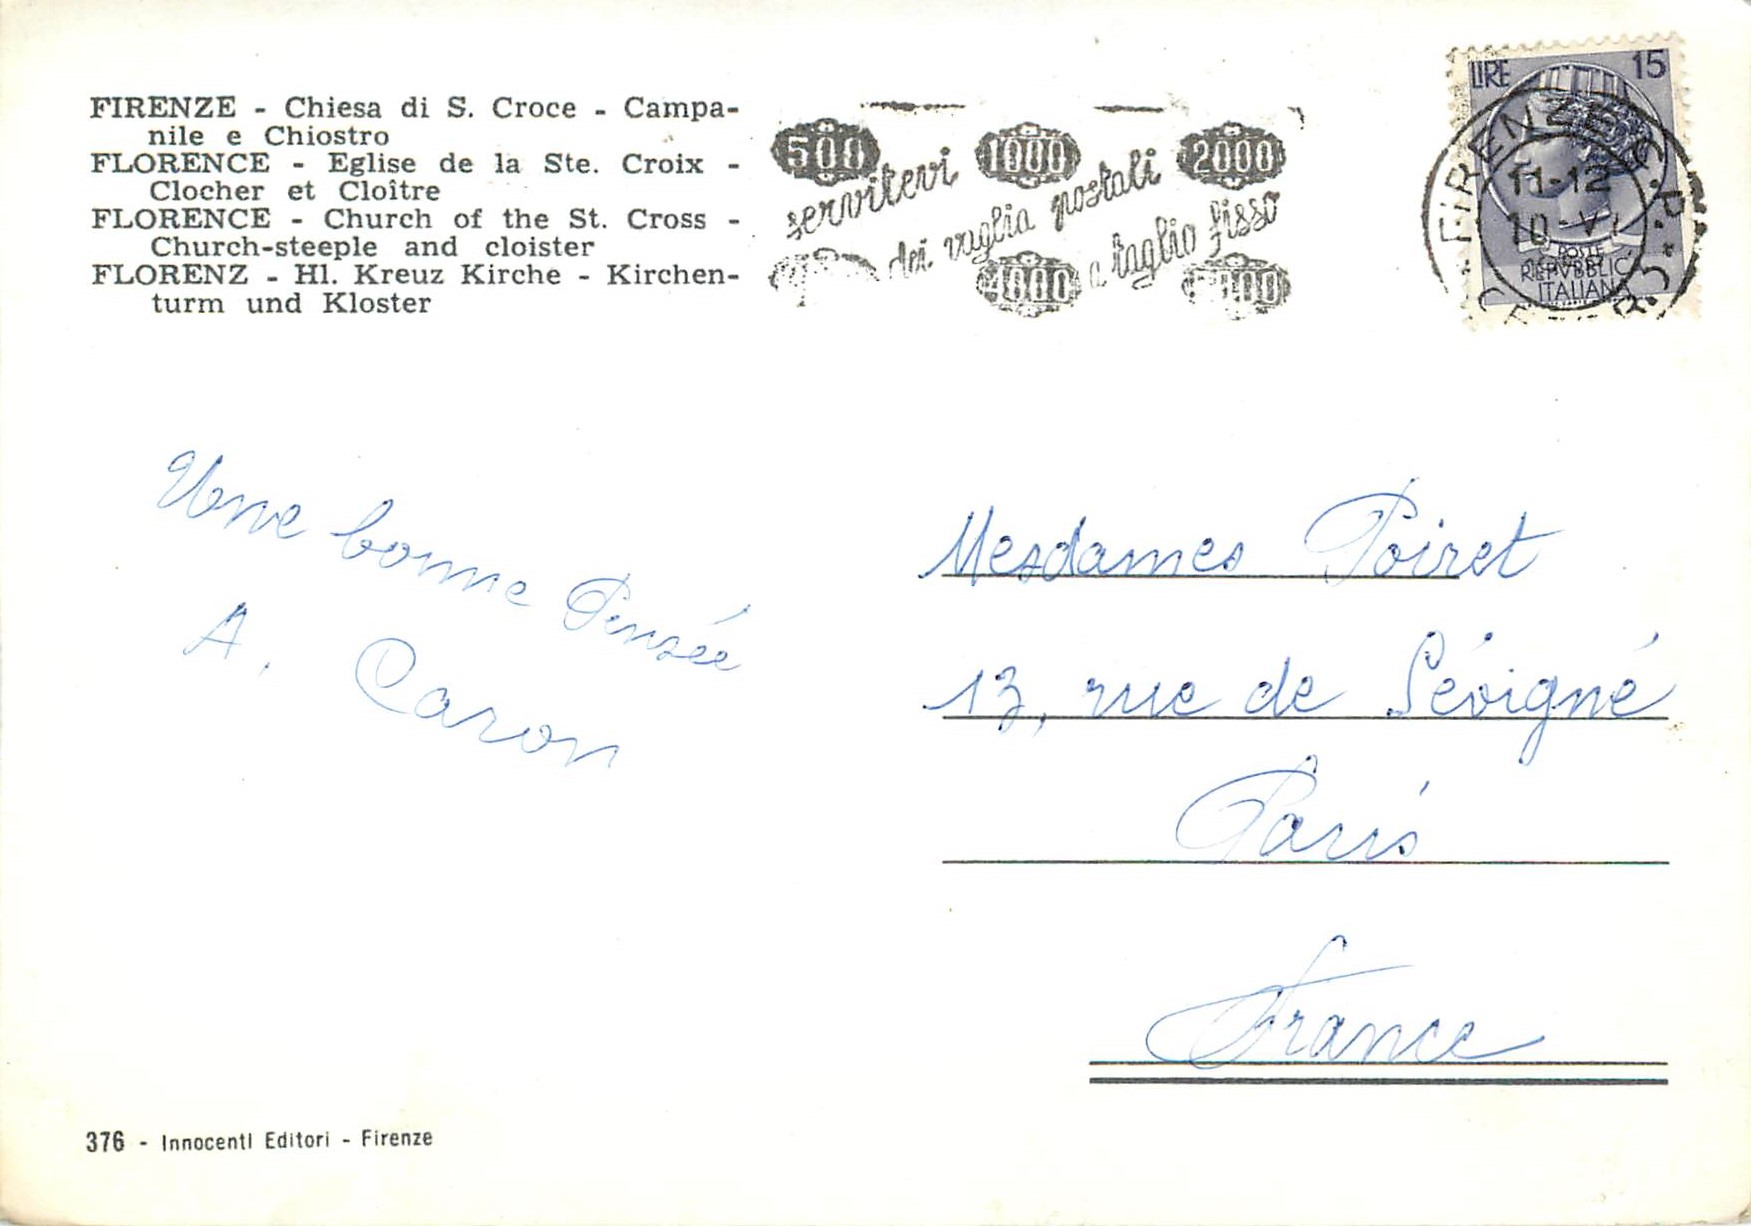 FIRENZE - Chiesa di S. Croce - Campa-
nile e Chiostro
FLORENCE - Eglise de la Ste. Croix -
Clocher et Cloître
FLORENCE - Church of the St. Cross -
Church-steeple and cloister
FLORENZ - Hl. Kreuz Kirche - Kirchen-
turm und Kloster
500 1000 2000
servitevi
dei vaglia postali
a taglio fisso
LIRE 15
POSTE
REPVBBLICA
ITALIANA
FIRENZE A.P.
11-12
10-VI
Une bonne Pensée
A. Caron
Mesdames Poiret
13, rue de Sévigné
Paris
France
376 - Innocenti Editori - Firenze